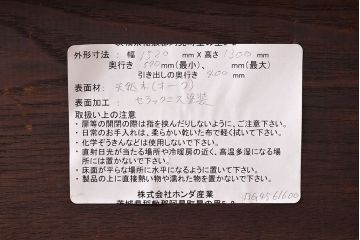 外形寸法：幅 1520 mm X 高さ 1300 mm
奥行き 590 mm（最小）、 mm（最大）
引き出しの奥行き 400 mm
表面材：天然木（オーク）
表面加工：セラックニス塗装
取扱い上の注意
・扉等の開閉の際は指を挟んだりしないように、ご注意下さい。
・日常のお手入れは、柔らかい乾いた布で軽く拭いて下さい。
・化学ぞうきんなどは使用しないで下さい。
・直射日光が当たる場所や冷暖房の近く、高温多湿になる場所には置かないで下さい。
・床面が平らな場所に水平になるように置いて下さい。
・製品の上に直接熱い物や濡れた物を置かないで下さい。
株式会社ホンダ産業